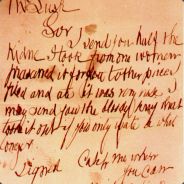 Mr Lusk
Sor
I send you half the
Kidne I took from one women
prasarved it for you tother piece
fried and ate it was very nise I
may send you the bloody knif that
took it out if you only wate a whil
longer
Signed Catch me when
you can